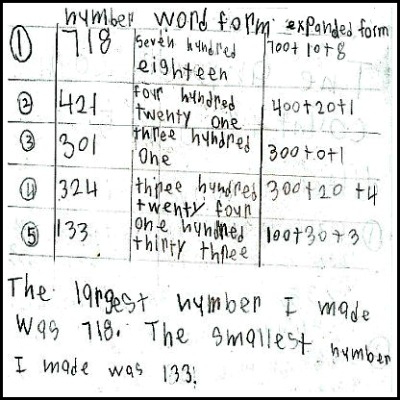 number word form expanded form
① 718 seven hundred 700+10+8
eighteen
② 421 four hundred 400+20+1
twenty one
③ 301 three hundred 300+0+1
one
④ 324 three hundred 300+20+4
twenty four
⑤ 133 one hundred 100+30+3
thirty three
The largest number I made
was 718. The smallest number
I made was 133.